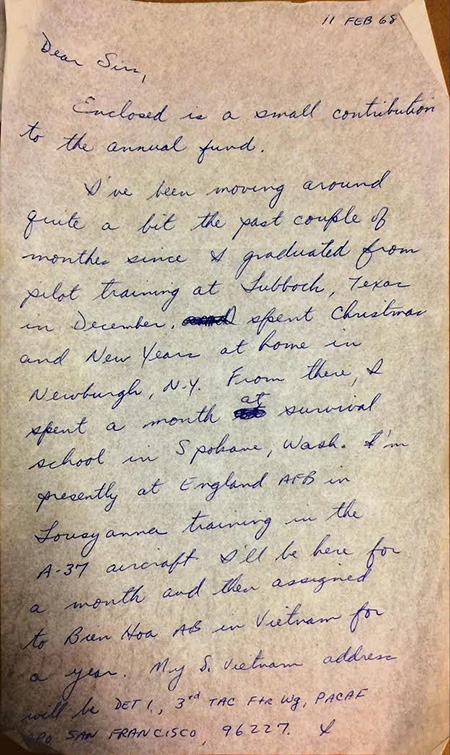 11 FEB 68
Dear Sirs,
Enclosed is a small contribution
to the annual fund.
I've been moving around
quite a bit the past couple of
months since I graduated from
pilot training at Lubbock, Texas
in December. spent Christmas
and New Years at home in
Newburgh, N.Y. From there, I
spent a month at survival
school in Spokane, Wash. I'm
presently at England AFB in
Lousyanna training in the
A-37 aircraft I'll be here for
a month and then assigned
to Bien Hoa AB in Vietnam for
a year. My S. Vietnam address
will be DET 1, 3rd TAC Ftr Wg, PACAF
APO SAN FRANCISCO, 96227. I